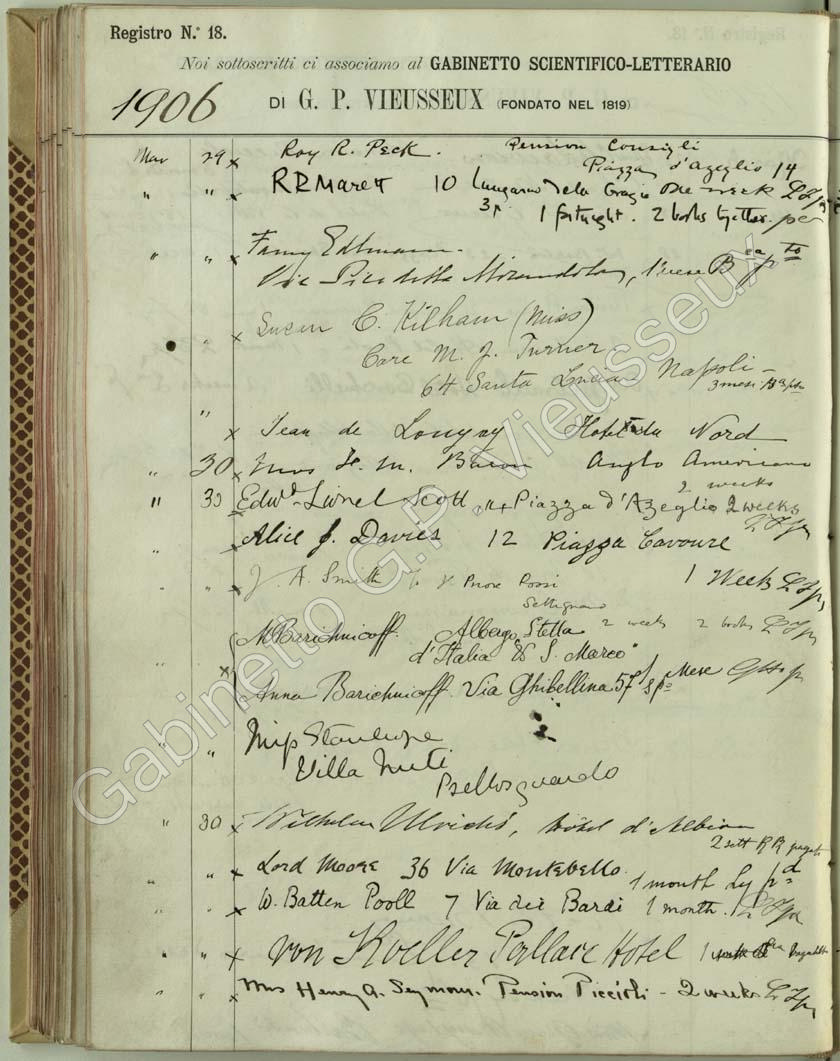 Registro N.° 18.
Noi sottoscritti ci associamo al GABINETTO SCIENTIFICO-LETTERARIO
1906 DI G. P. VIEUSSEUX (FONDATO NEL 1819)
Mar 29 x Roy R. Peck. Pension Consigli
Piazza d'Azeglio 14
" " x R R Marett 10 Lungarno della Grazie One week
1 fortnight. 2 books together.
" " x Fanny
Via Pico della Mirandola, 1 mese
" x Susan C. Kilham (Miss)
Care M. J. Turner
64 Santa Lucia Napoli
3 mesi
" x Jean de Hotel du Nord
" 30 x Mrs H. M. Bacon Anglo Americano
2 weeks
" 30 Edwd. Lionel Scott, Piazza d'Azeglio 2 weeks
" x Alice J. Davies 12 Piazza Cavour
" " x J. A. Smith 1 Week
Settignano
M Barichnicoff. Albergo Stella 2 weeks 2 books
d'Italia & S. Marco"
" x Anna Barichnicoff. Via Ghibellina 57 1 Mese
" " Miss Stanhope
Villa Nuti
Bellosguardo
" 30 x Wilhelm Ulrichs, hôtel d'Albion
2 sett
" " x Lord Moore 36 Via Montebello.
1 month
" " x W. Batten Pooll 7 Via dei Bardi 1 month.
" " x von Koeller Pallace Hotel 1
" " x Mrs Henry A. Seymour. Pension Piccioli - 2 weeks
Gabinetto G.P. Vieusseux